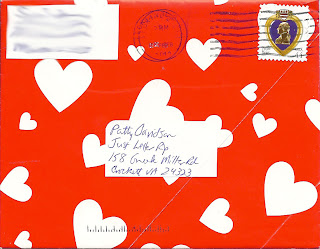 Patty Davidson
Just Letter Rip
158 Creek Miller Rd
Crockett VA 24323